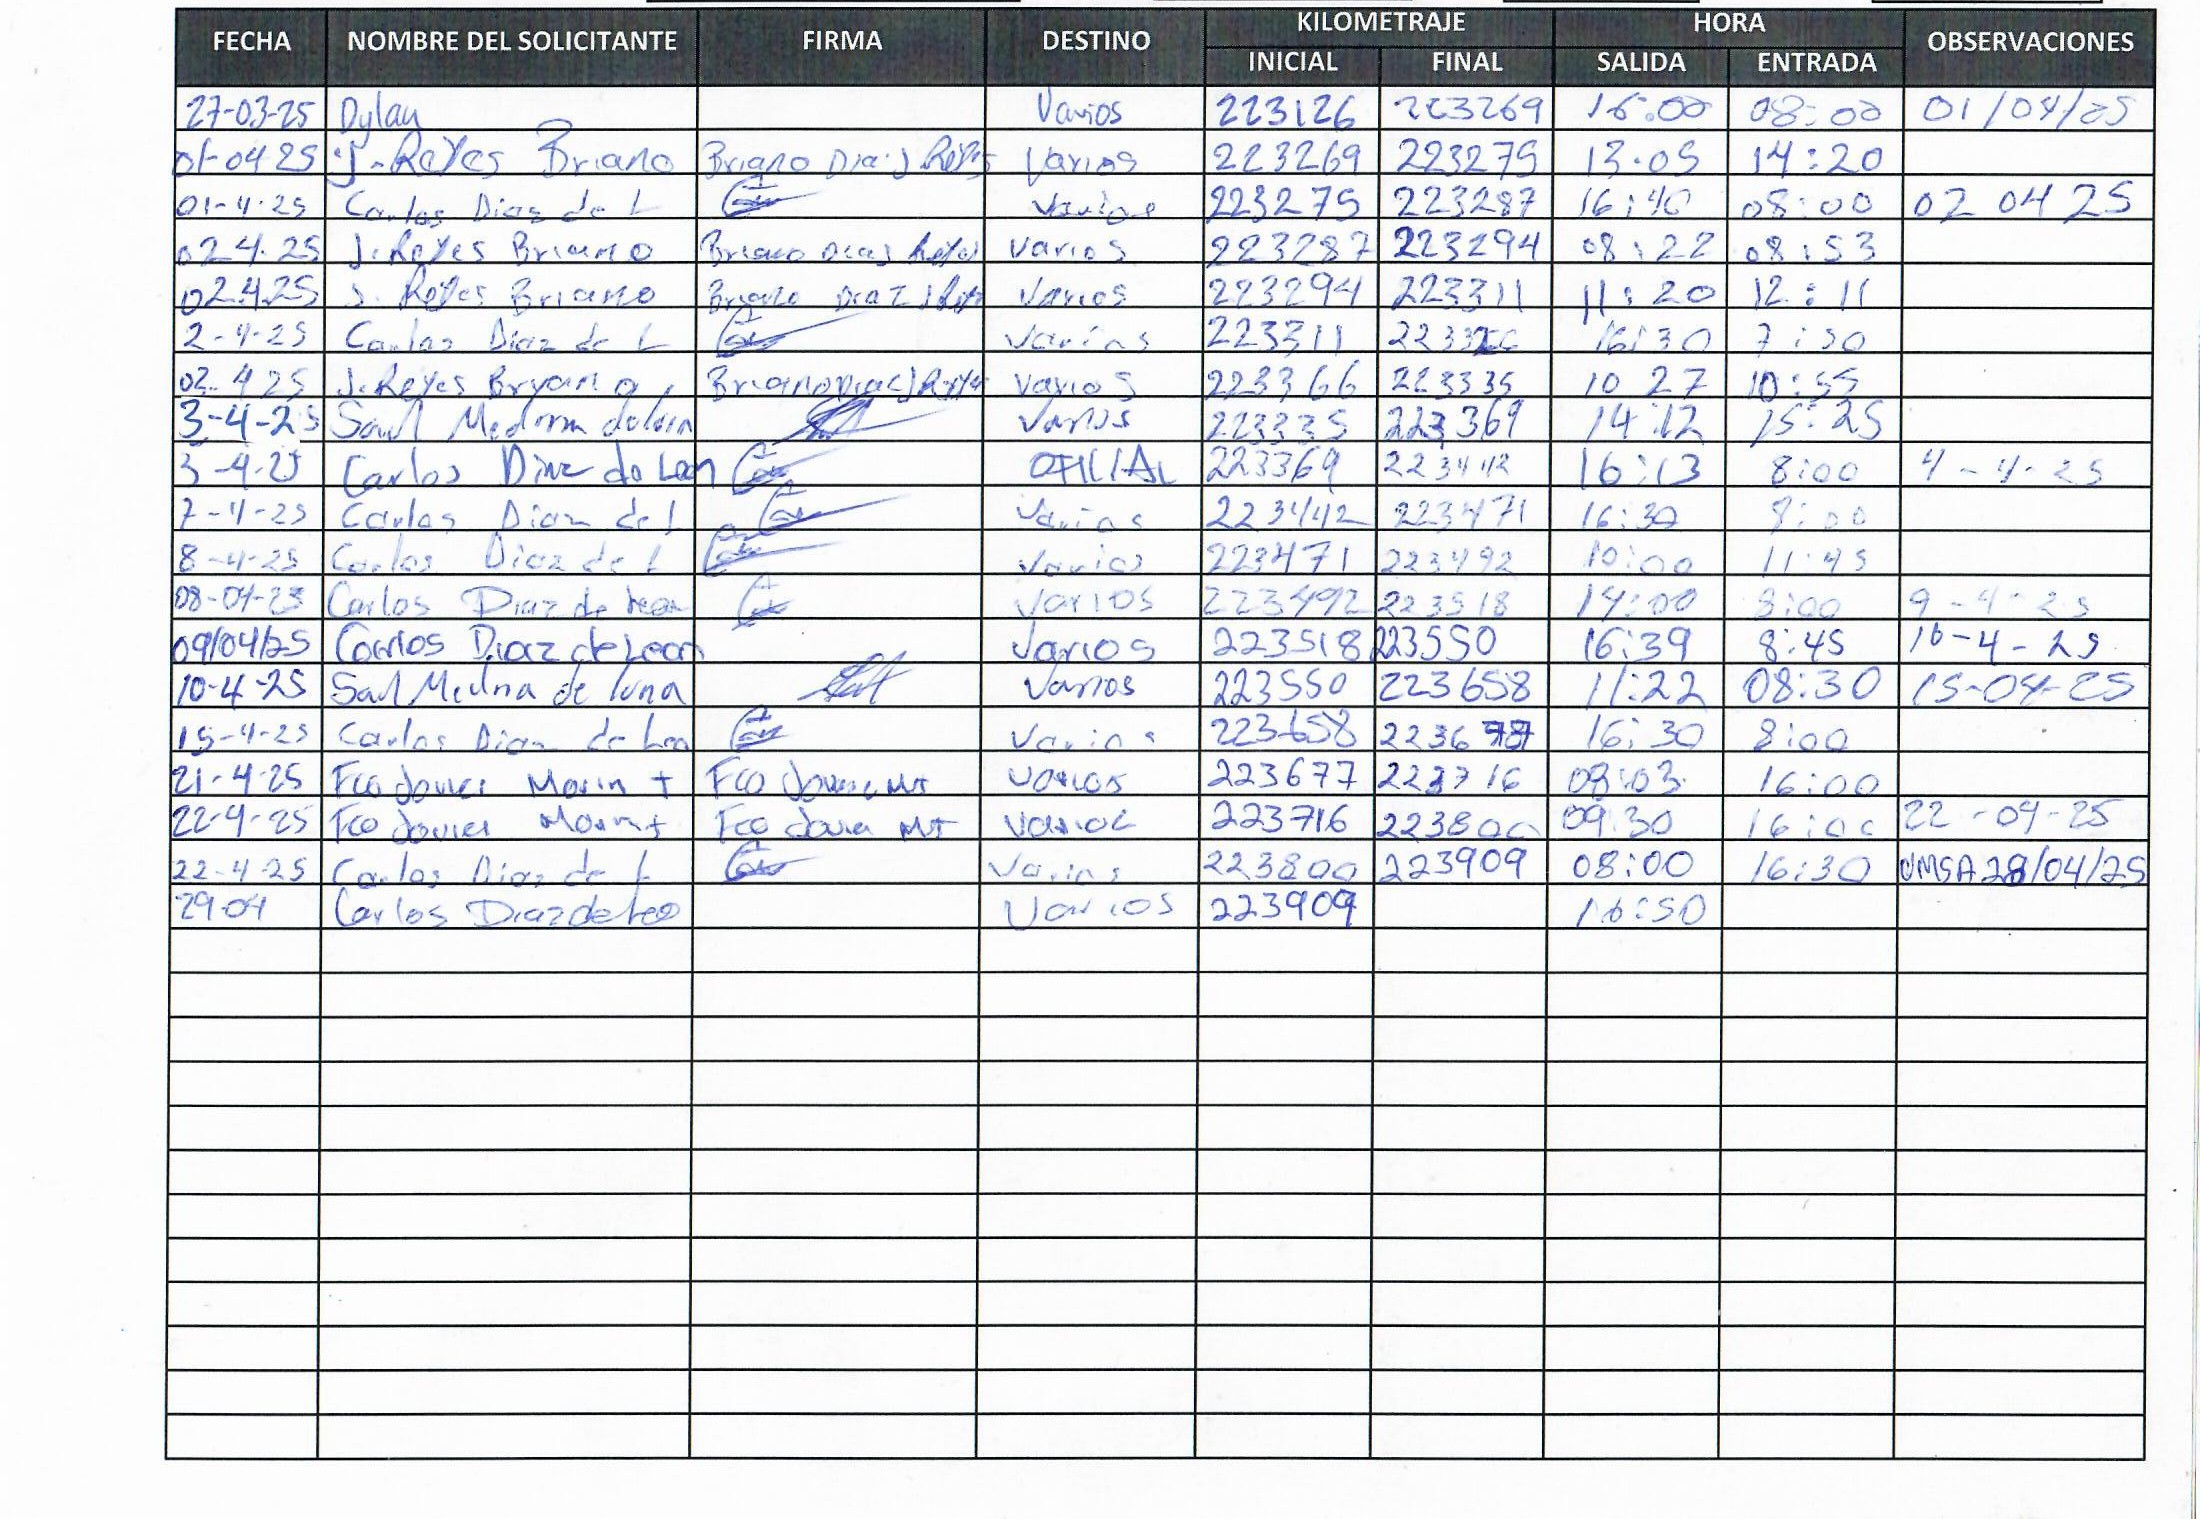 FECHA NOMBRE DEL SOLICITANTE FIRMA DESTINO KILOMETRAJE HORA OBSERVACIONES
INICIAL FINAL SALIDA ENTRADA
27-03-25 Dylan Varios 223126 223269 16:00 08:00 01/04/25
01-04 25 J-Reyes Briano Briano Diaz J Reyes Varios 223269 223275 13:05 14:20
01-4-25 Carlos Diaz de L Varios 223275 223287 16:40 08:00 02 04 25
02.4.25 J. Reyes Briano Briano Diaz J Reyes Varios 223287 223294 08:22 08:53
02.4.25 J. Reyes Briano Briano Diaz J Reyes Varios 223294 223311 11:20 12:11
2-4-25 Carlos Diaz de L Varios 223311 16:30 7:30
02. 4 25 J. Reyes Bryano Briano Diaz J Reyes Varios 223366 223335 10 27 10:55
3-4-25 Saul Medina de luna Varios 223335 223369 14:12 15:25
3-4-25 Carlos Diaz de Leon OFICIAL 223369 223442 16:13 8:00 4-4-25
7-4-25 Carlos Diaz de L Varios 223442 223471 16:30 8:00
8-4-25 Carlos Diaz de L Varios 223471 223492 10:00 11:45
08-04-25 Carlos Diaz de Leon Varios 223492 223518 14:00 8:00 9-4-25
09/04/25 Carlos Diaz de Leon Varios 223518 223550 16:39 8:45 10-4-25
10-4-25 Saul Medina de luna Varios 223550 223658 11:22 08:30 15-04-25
15-4-25 Carlos Diaz de Leo Varios 223658 16:30 8:00
21-4-25 Fco Javier Morin t Fco Javier Mt Varios 223677 223716 08:03 16:00
22-4-25 Fco Javier Morin t Fco Javier Mt Varios 223716 223800 09:30 16:00 22-04-25
22-4-25 Carlos Diaz de L Varios 223800 223909 08:00 16:30 UMSA 28/04/25
29-04 Carlos Diaz de Leo Varios 223909 16:50